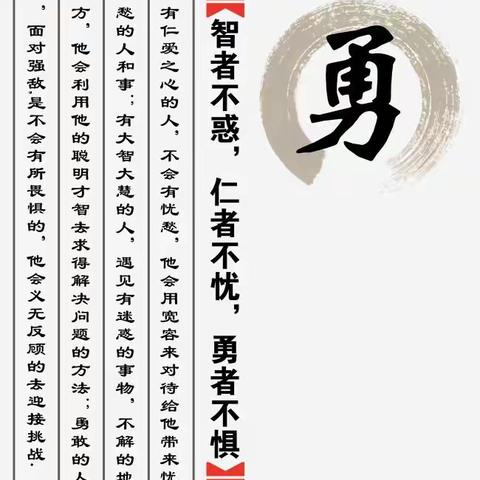 勇
【智者不惑，仁者不忧，勇者不惧】
有仁爱之心的人，不会有忧愁，他会用宽容来对待给他带来忧
愁的人和事；有大智大慧的人，遇见有迷惑的事物，不解的地
方，他会利用他的聪明才智去求得解决问题的方法；勇敢的人
，面对强敌.是不会有所畏惧的，他会义无反顾的去迎接挑战.